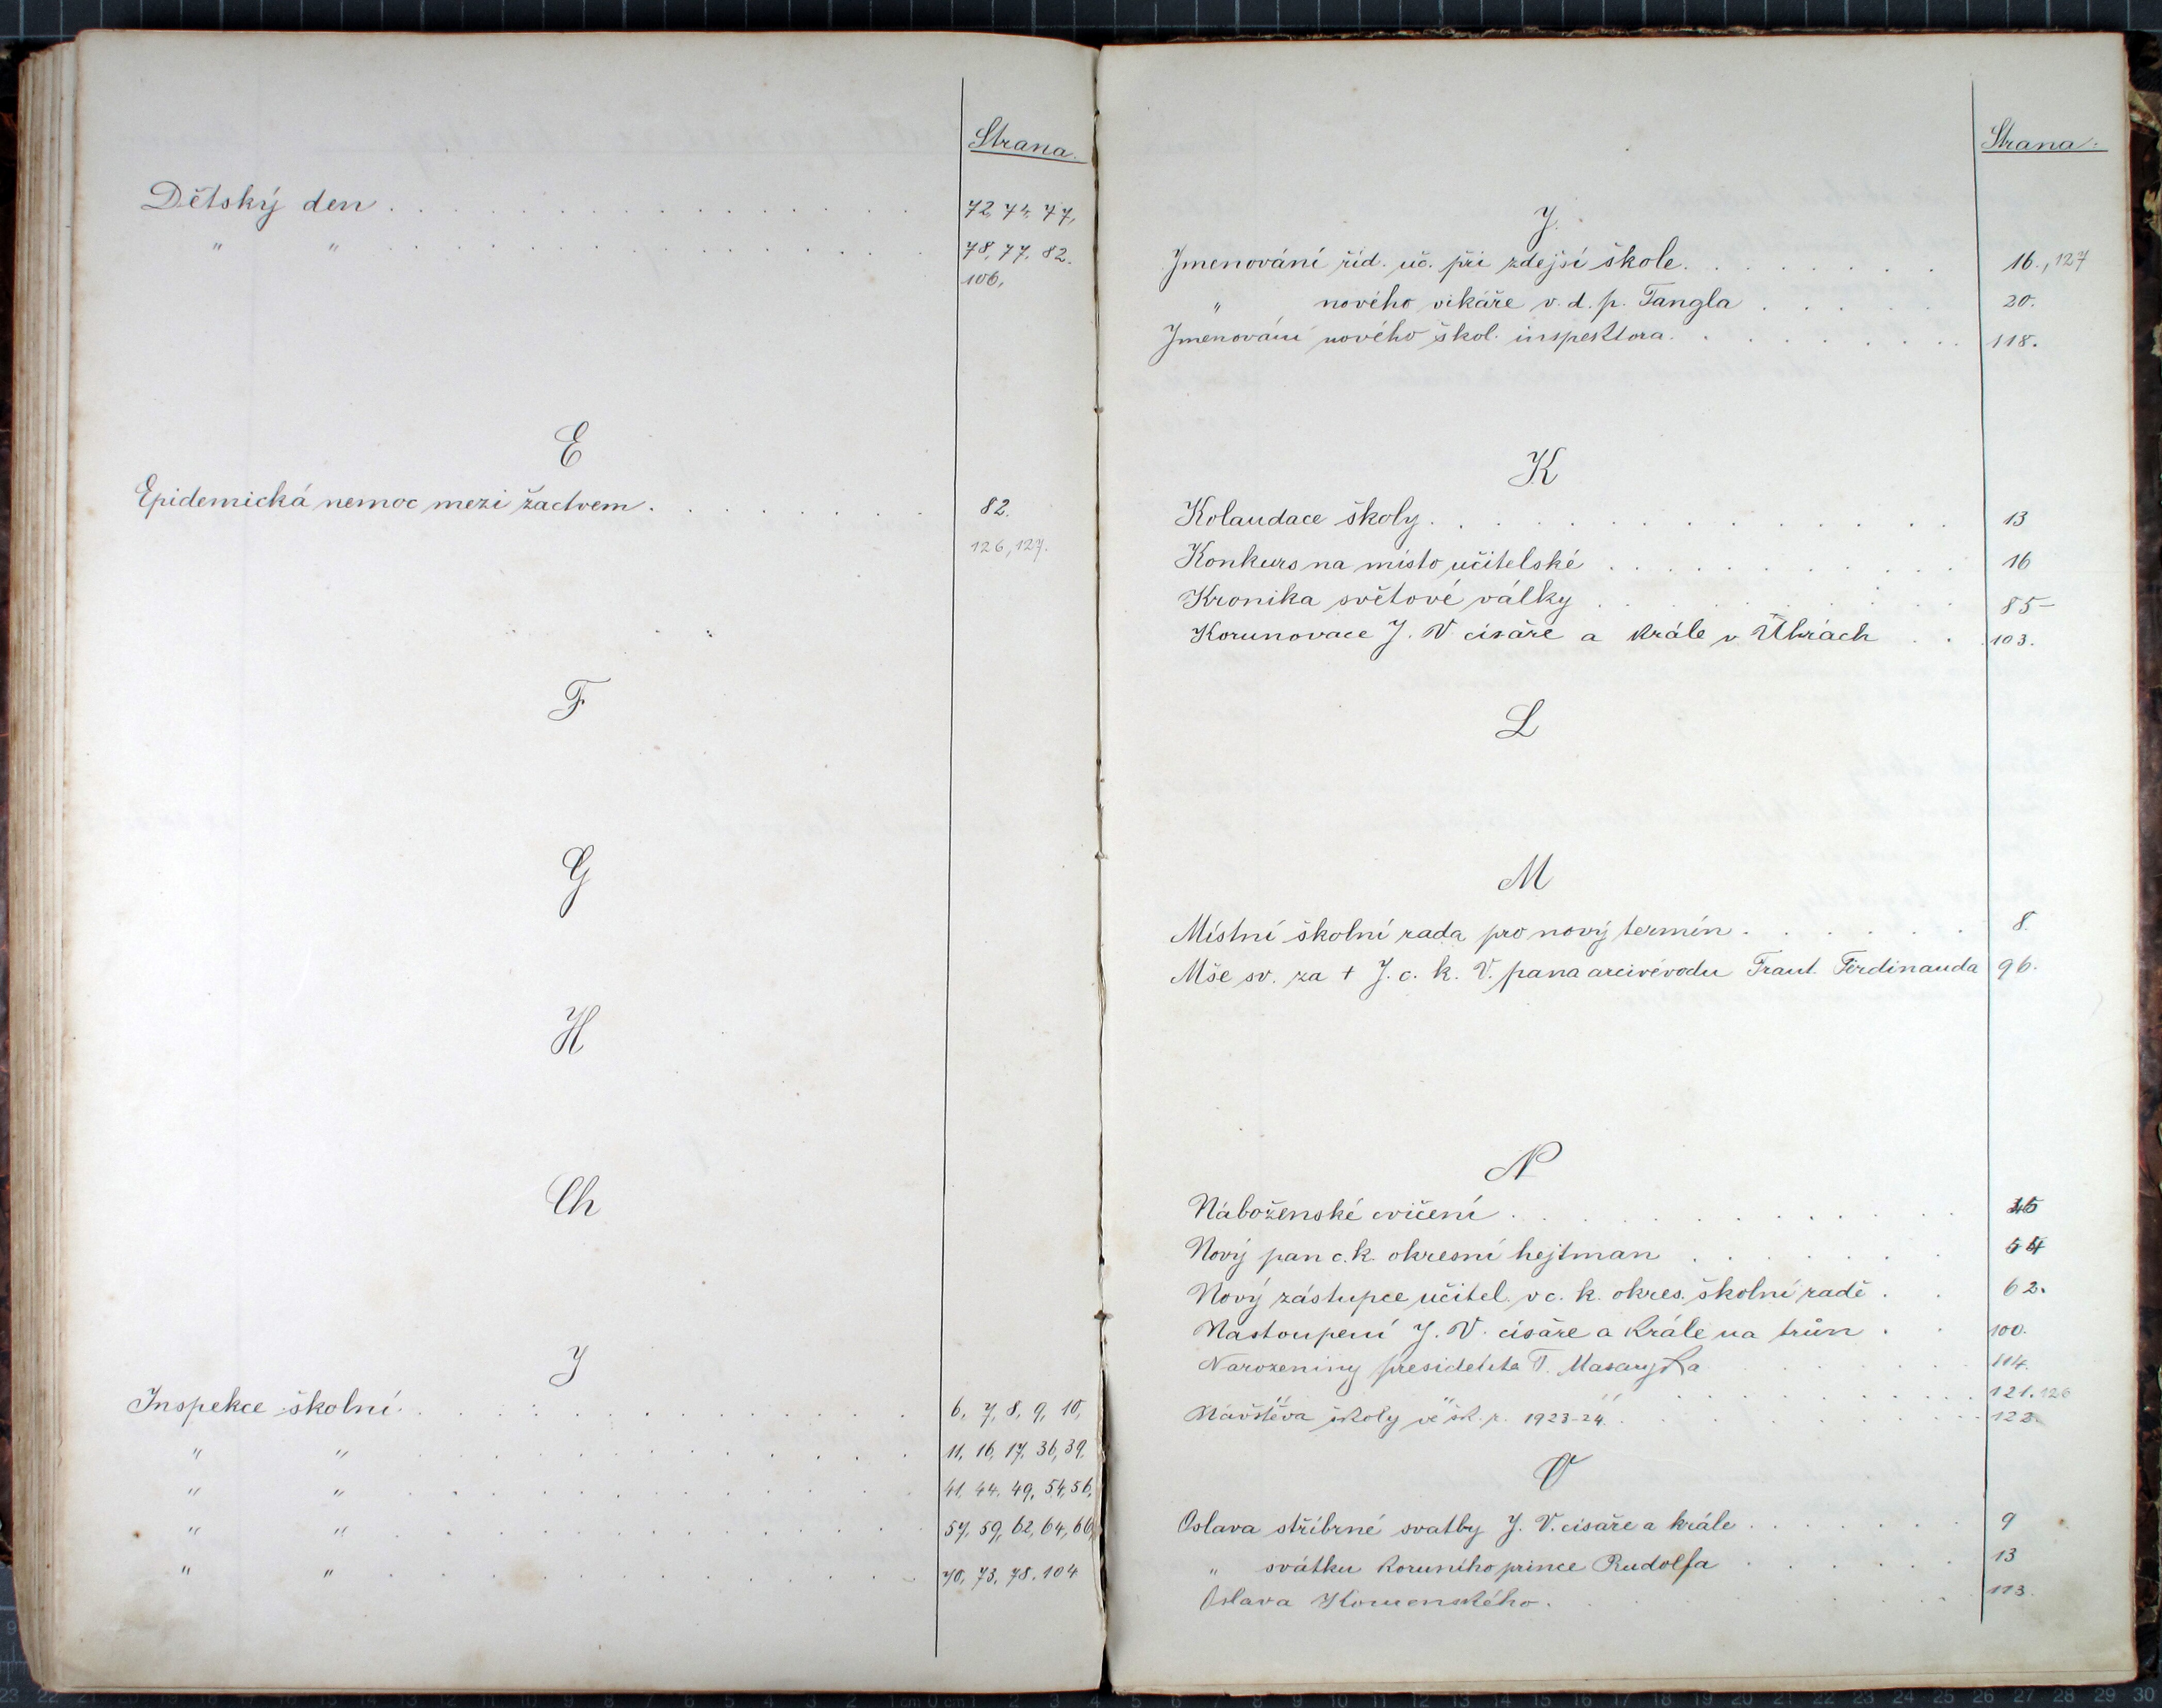 Strana.
Dětský den . . . . . . . . . . . . . . 72, 74, 77,
" " . . . . . . . . . . . . . . 78, 77, 82.
106,
E
Epidemická nemoc mezi žactvem . . . . . . . . 82.
126, 127.
F
G
H
Ch
J
Inspekce školní . . . . . . . . . . . . . 6, 7, 8, 9, 10,
" " . . . . . . . . . . . . . 11, 16, 17, 36, 39,
" " . . . . . . . . . . . . . 41, 44, 49, 54, 56,
" " . . . . . . . . . . . . . 57, 59, 62, 64, 66,
" " . . . . . . . . . . . . . 70, 73, 78, 104
Strana.
J.
Jmenování říd. uč. při zdejší škole . . . . . . . 16., 127
" nového vikáře v. d. p. Tangla . . . . . 20.
Jmenování nového škol. inspektora . . . . . . . . 118.
K
Kolaudace školy . . . . . . . . . . . . . . 13
Konkurs na místo učitelské . . . . . . . . . . 16
Kronika světové války . . . . . . . . . . . 85
Korunovace J. V. císáře a krále v Uhrách . . . 103.
L
M
Místní školní rada pro nový termín . . . . . . . 8.
Mše sv. za † J. c. k. V. pana arcivévodu Frant. Ferdinanda 96.
N
Náboženské cvičení . . . . . . . . . . . .
Nový pan c. k. okresní hejtman . . . . . . . 54
Nový zástupce učitel. v c. k. okres. školní radě . . 62.
Nastoupení J. V. císáře a krále na trůn . . 100.
Narozeniny presidenta T. Masaryka . . . . . . 114.
" " . . . . . . . . . 121. 126
Návštěva školy ve šk. r. 1923-24 . . . . . . . . . 122.
O
Oslava stříbrné svatby J. V. císaře a krále . . . . . . . 9
" svátku koruního prince Rudolfa . . . . . . 13
Oslava Komenského . . . . . . . . . . . 113.